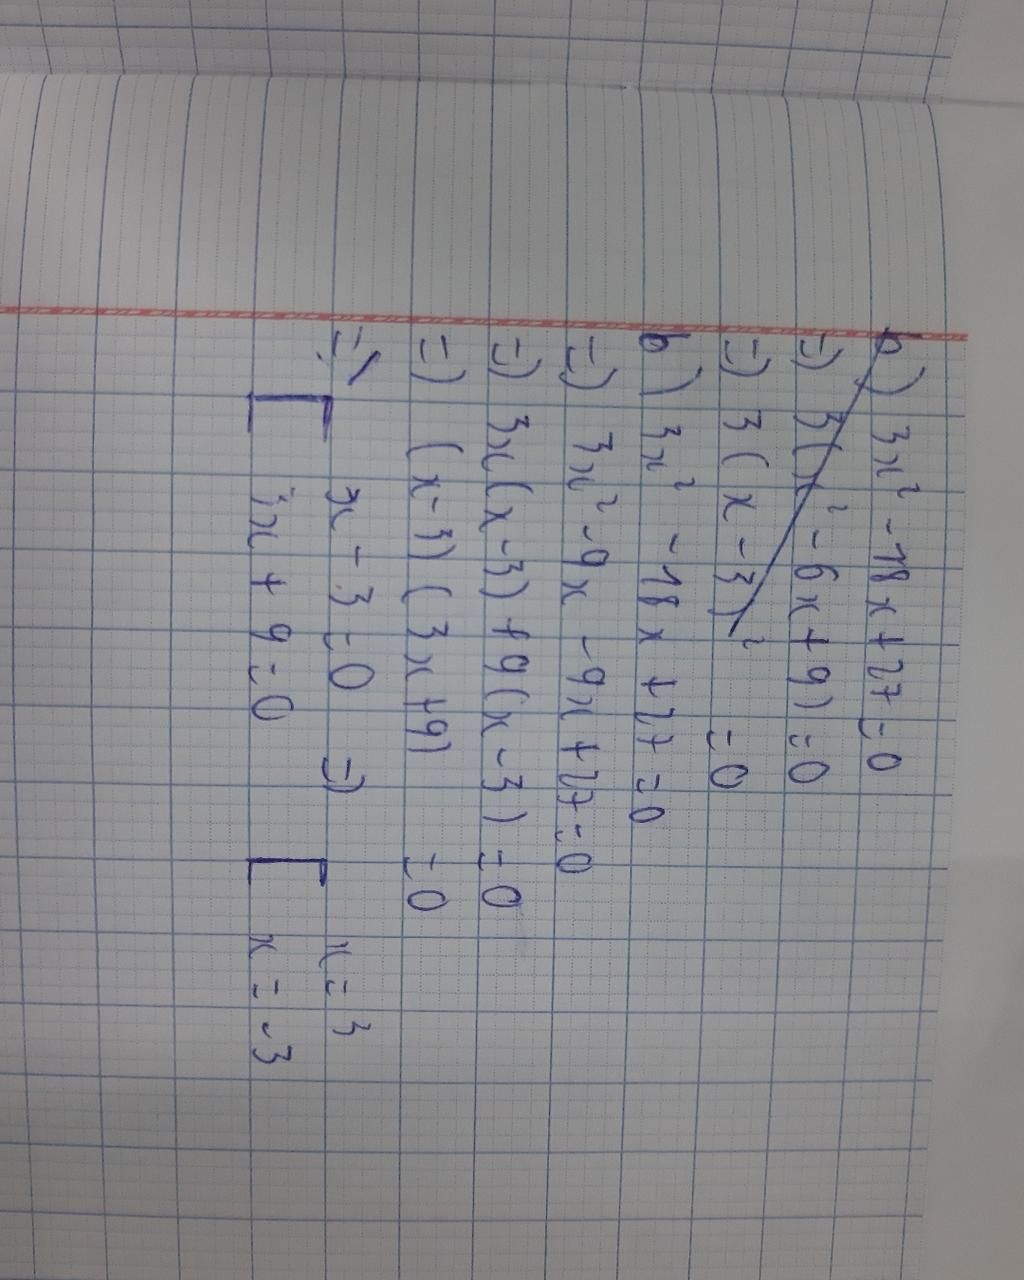 b) 3x² - 18x + 27 = 0
=) 3(x² - 6x + 9) = 0
=) 3(x - 3)² = 0
b) 3x² - 18x + 27 = 0
=) 3x² - 9x - 9x + 27 = 0
=) 3x(x - 3) + 9(x - 3) = 0
=) (x - 3)(3x + 9) = 0
=) [ x - 3 = 0 =) [ x = 3
3x + 9 = 0 x = -3